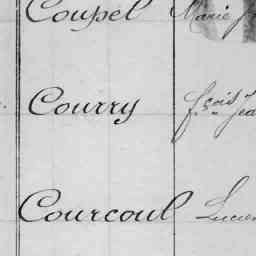 Coupel Marie
Courry fçois Jea
Courcoul Lucien